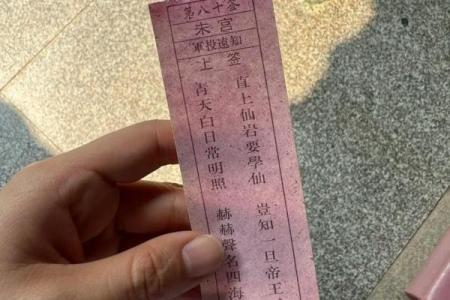 第八十签
未宮
軍投遠知
上签
直上仙岩要學仙 豈知一旦帝王
青天白日常明照 赫赫聲名四海